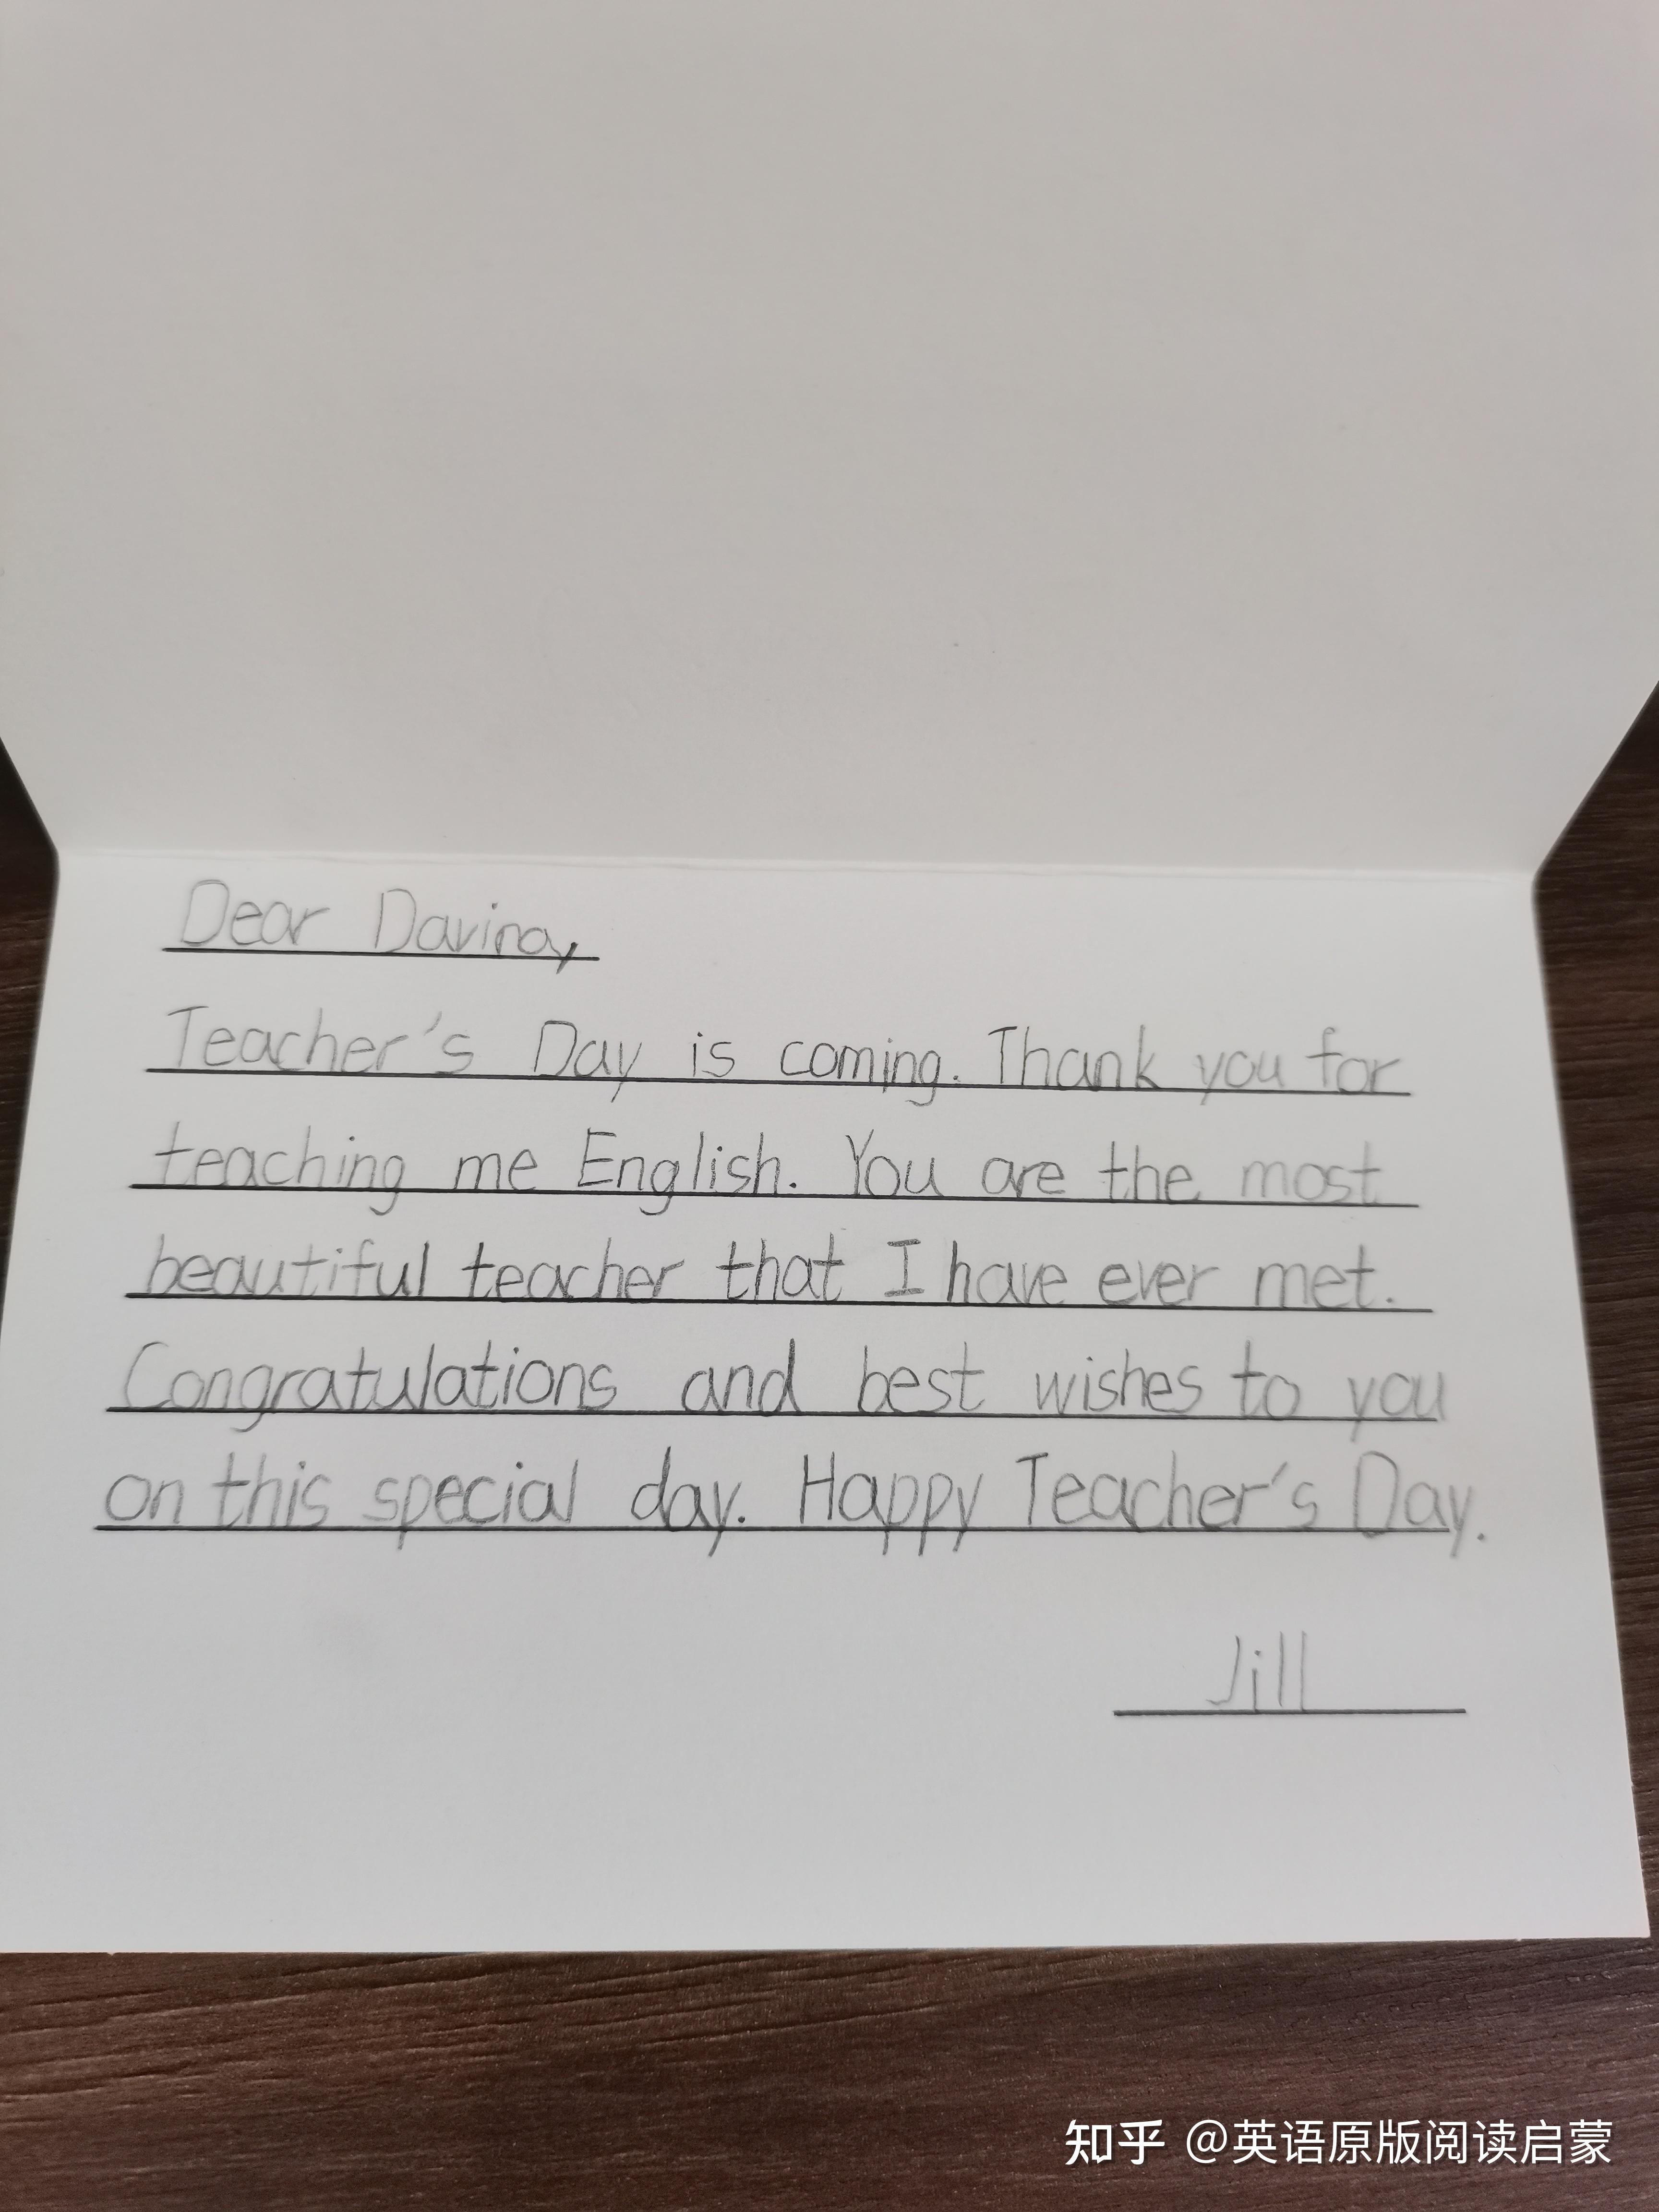 Dear Davina,
Teacher's Day is coming. Thank you for
teaching me English. You are the most
beautiful teacher that I have ever met.
Congratulations and best wishes to you
on this special day. Happy Teacher's Day.
Jill
知乎 @英语原版阅读启蒙